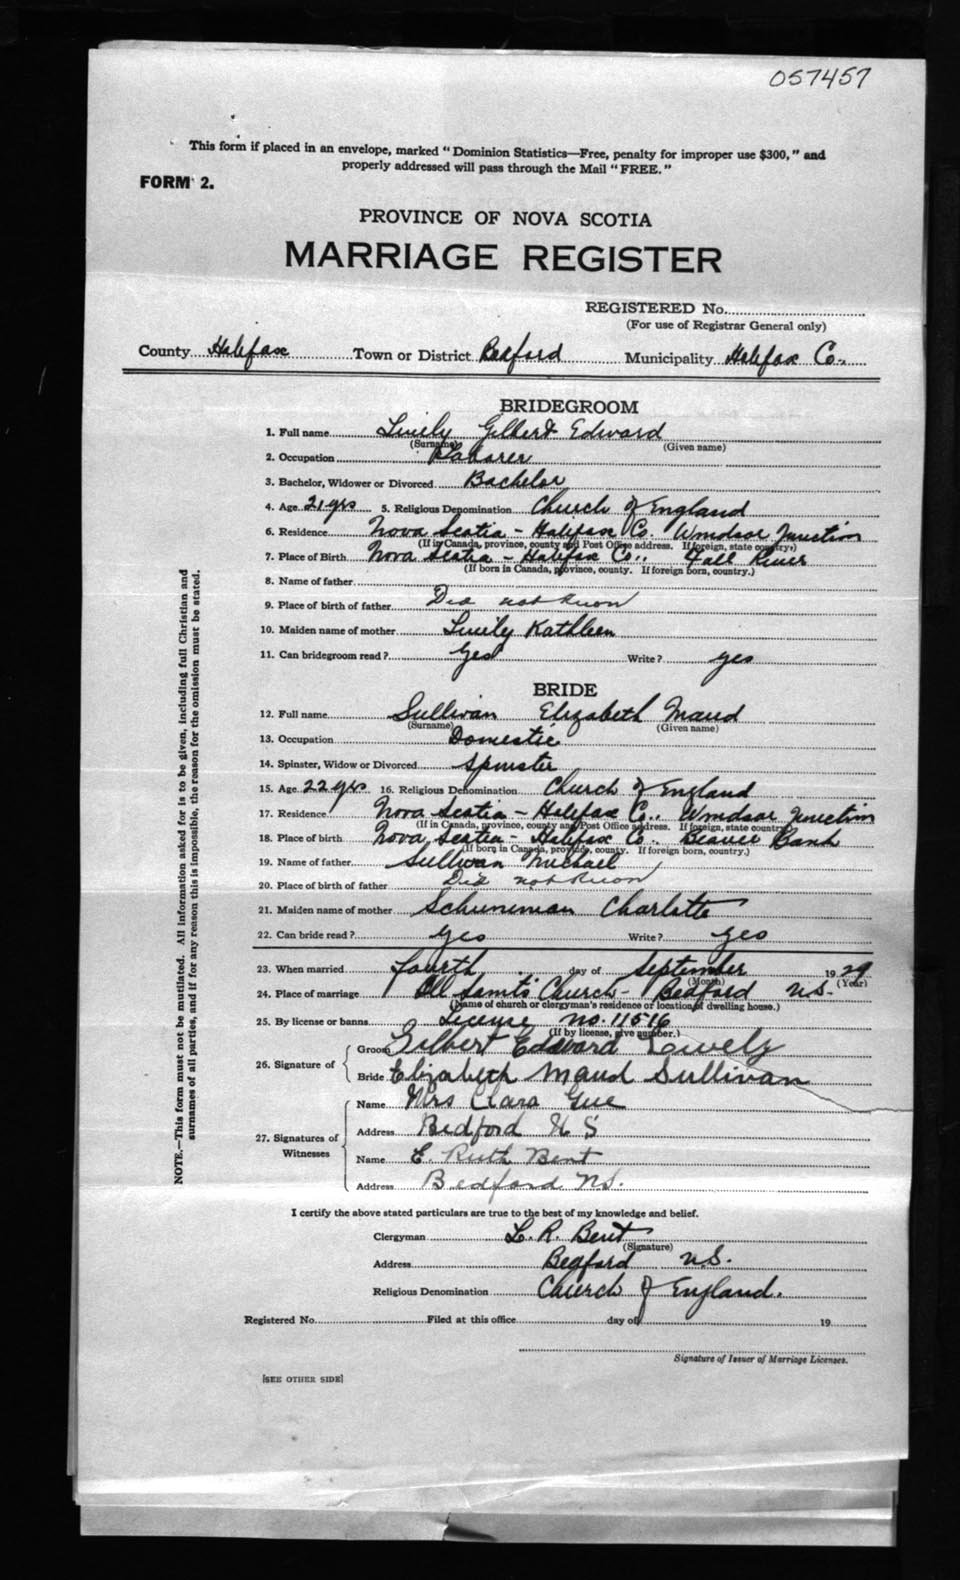 057457
This form if placed in an envelope, marked "Dominion Statistics—Free, penalty for improper use $300," and
properly addressed will pass through the Mail "FREE."
FORM 2.
PROVINCE OF NOVA SCOTIA
MARRIAGE REGISTER
REGISTERED No.
(For use of Registrar General only)
County Halifax Town or District Bedford Municipality Halifax Co.
BRIDEGROOM
1. Full name Lively Gilbert Edward
(Surname) (Given name)
2. Occupation Laborer
3. Bachelor, Widower or Divorced Bachelor
4. Age 21 yrs 5. Religious Denomination Church of England
6. Residence Nova Scotia - Halifax Co. Windsor Junction
(If in Canada, province, county and Post Office address. If foreign, state country.)
7. Place of Birth Nova Scotia - Halifax Co., Fall River
(If born in Canada, province, county. If foreign born, country.)
8. Name of father
9. Place of birth of father Did not know
10. Maiden name of mother Lively Kathleen
11. Can bridegroom read? Yes Write? yes
BRIDE
12. Full name Sullivan Elizabeth Maud
(Surname) (Given name)
13. Occupation Domestic
14. Spinster, Widow or Divorced Spinster
15. Age 22 yrs 16. Religious Denomination Church of England
17. Residence Nova Scotia - Halifax Co., Windsor Junction
(If in Canada, province, county and Post Office address. If foreign, state country.)
18. Place of birth Nova Scotia - Halifax Co. Beaver Bank
(If born in Canada, province, county. If foreign born, country.)
19. Name of father Sullivan Michael
20. Place of birth of father Did not know
21. Maiden name of mother Schuneman Charlotte
22. Can bride read? yes Write? yes
23. When married fourth day of September 1929
(Month) (Year)
24. Place of marriage All Saints Church - Bedford N.S.
(Name of church or clergyman's residence or location of dwelling house.)
25. By license or banns License no. 11516
(If by license, give number.)
26. Signature of Groom Gilbert Edward Lively
Bride Elizabeth Maud Sullivan
27. Signatures of Witnesses Name Mrs Clara Gue
Address Bedford N S
Name E. Ruth Bent
Address Bedford N.S.
I certify the above stated particulars are true to the best of my knowledge and belief.
Clergyman L. R. Bent
(Signature)
Address Bedford N.S.
Religious Denomination Church of England.
Registered No. Filed at this office day of 19
Signature of Issuer of Marriage Licenses.
[SEE OTHER SIDE]
NOTE.—This form must not be mutilated. All information asked for is to be given, including full Christian and
surnames of all parties, and if for any reason this is impossible, the reason for the omission must be stated.